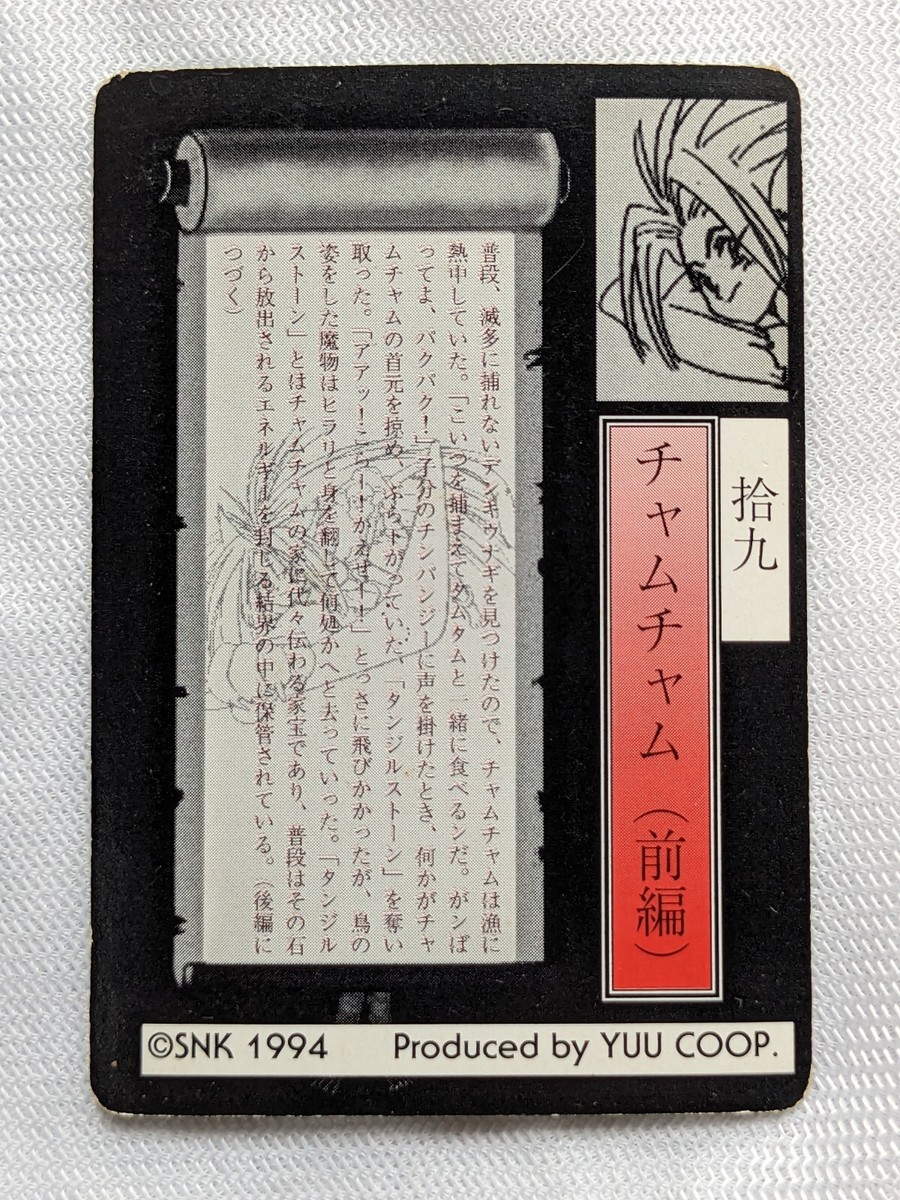 拾九
チャムチャム（前編）
普段、滅多に捕れないデンキウナギを見つけたので、チャムチャムは漁に
熱中していた。「こいつを捕まえてタムタムと一緒に食べるンだ。がンば
ってよ、パクパク！」子分のチンパンジーに声を掛けたとき、何かがチャ
ムチャムの首元を掠め、ぶら下がっていた、「タンジルストーン」を奪い
取った。「アアッ！こらー！かえせー！」とっさに飛びかかったが、鳥の
姿をした魔物はヒラリと身を翻して何処かへと去っていった。「タンジル
ストーン」とはチャムチャムの家に代々伝わる家宝であり、普段はその石
から放出されるエネルギーを封じる結界の中に保管されている。（後編に
つづく）
©SNK 1994 Produced by YUU COOP.